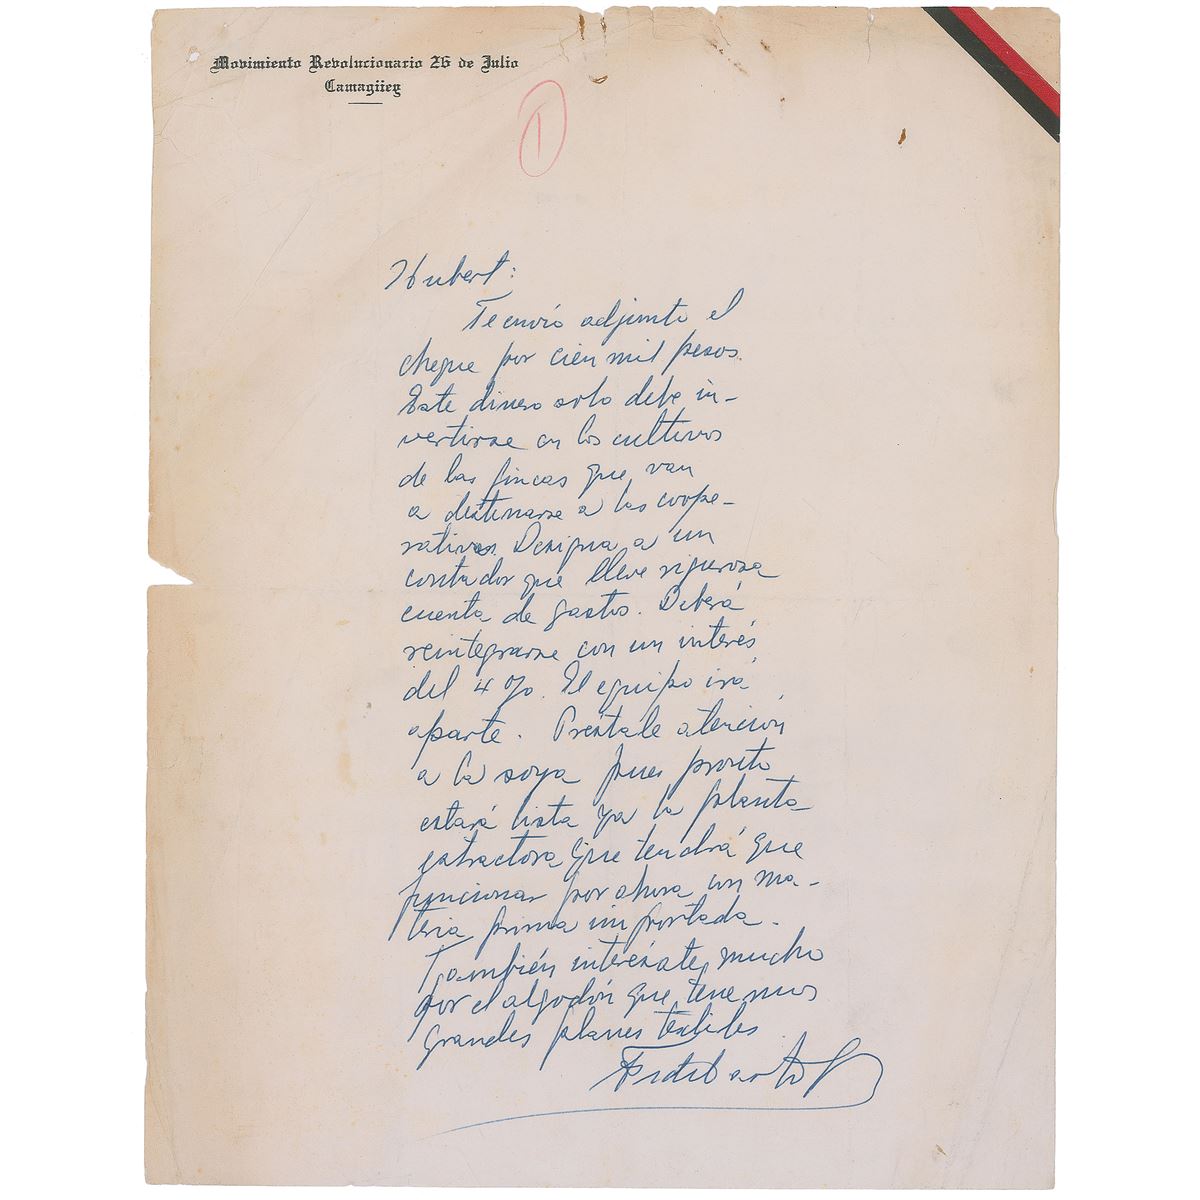 Movimiento Revolucionario 26 de Julio
Camagüey
1
Hubert:
Te envío adjunto el
cheque por cien mil pesos.
Este dinero solo debe in-
vertirse en los cultivos
de las fincas que van
a destinarse a las coope-
rativas. Designa a un
contador que lleve rigurosa
cuenta de gastos. Deberá
reintegrarse con un interés
del 4 %. El equipo irá
aparte. Préstale atención
a la soya pues pronto
estará lista ya la planta
extractora que tendrá que
funcionar por ahora con ma-
teria prima importada.
También interésate mucho
por el algodón que tenemos
grandes planes textiles
Fidel Castro